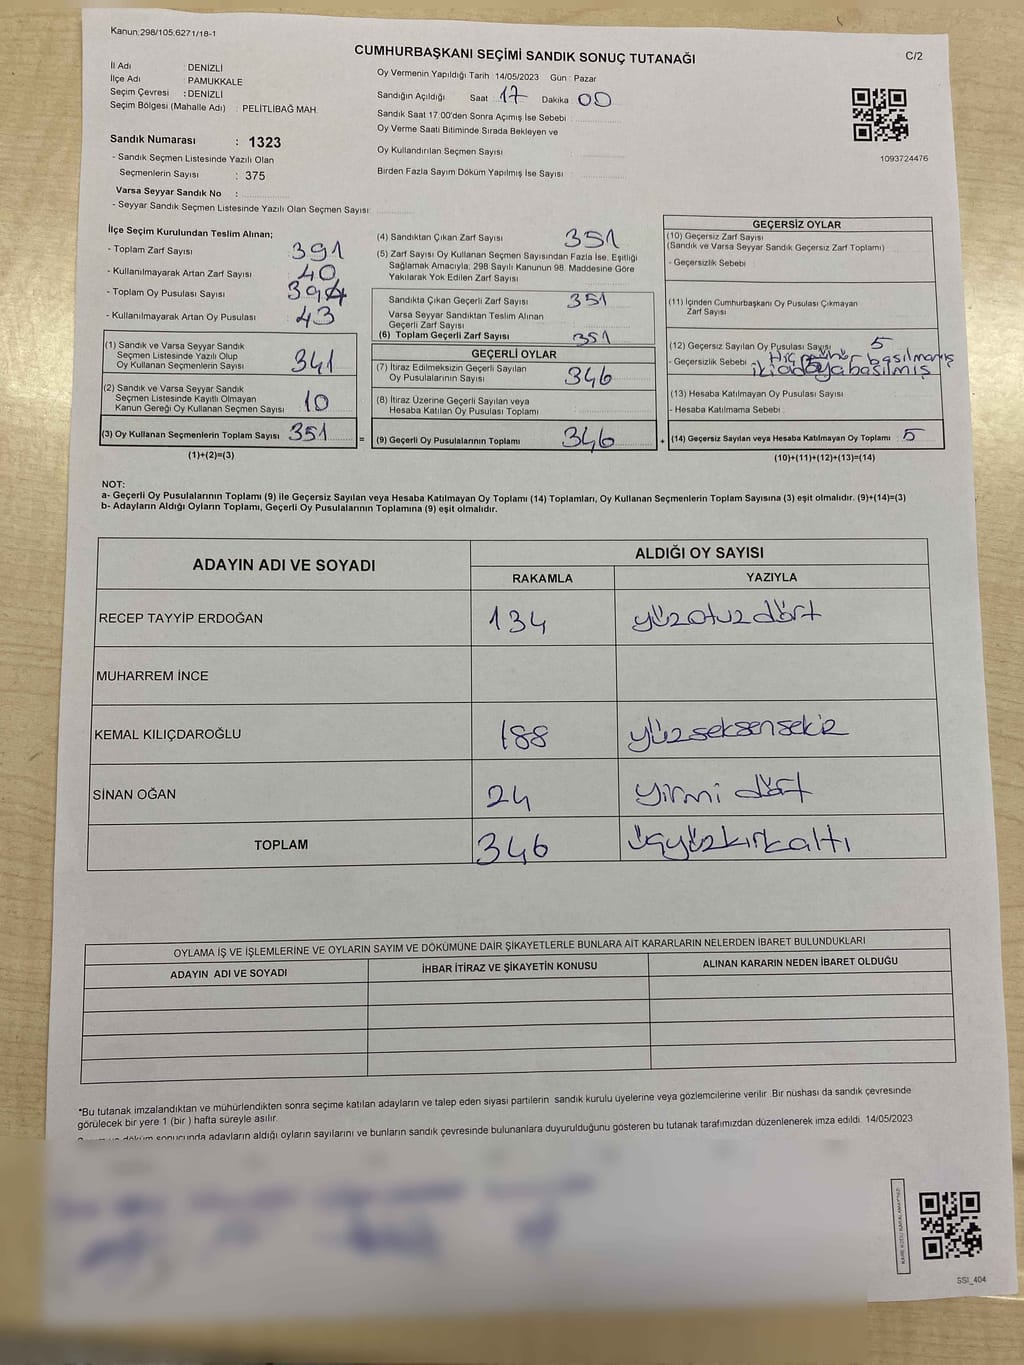 Kanun:298/105.6271/18-1
CUMHURBAŞKANI SEÇİMİ SANDIK SONUÇ TUTANAĞI
C/2
İl Adı : DENİZLİ
İlçe Adı : PAMUKKALE
Seçim Çevresi : DENİZLİ
Seçim Bölgesi (Mahalle Adı) : PELİTLİBAĞ MAH.
Sandık Numarası : 1323
- Sandık Seçmen Listesinde Yazılı Olan
Seçmenlerin Sayısı : 375
Varsa Seyyar Sandık No :
- Seyyar Sandık Seçmen Listesinde Yazılı Olan Seçmen Sayısı:
Oy Vermenin Yapıldığı Tarih : 14/05/2023 Gün : Pazar
Sandığın Açıldığı Saat : 17 Dakika : 00
Sandık Saat 17.00'den Sonra Açımış İse Sebebi :
Oy Verme Saati Bitiminde Sırada Bekleyen ve
Oy Kullandırılan Seçmen Sayısı :
Birden Fazla Sayım Döküm Yapılmış İse Sayısı :
1093724476
İlçe Seçim Kurulundan Teslim Alınan;
- Toplam Zarf Sayısı : 391
- Kullanılmayarak Artan Zarf Sayısı : 40
- Toplam Oy Pusulası Sayısı : 394
- Kullanılmayarak Artan Oy Pusulası : 43
(1) Sandık ve Varsa Seyyar Sandık
Seçmen Listesinde Yazılı Olup
Oy Kullanan Seçmenlerin Sayısı : 341
(2) Sandık ve Varsa Seyyar Sandık
Seçmen Listesinde Kayıtlı Olmayan
Kanun Gereği Oy Kullanan Seçmen Sayısı : 10
(3) Oy Kullanan Seçmenlerin Toplam Sayısı : 351
(1)+(2)=(3)
=
(4) Sandıktan Çıkan Zarf Sayısı : 351
(5) Zarf Sayısı Oy Kullanan Seçmen Sayısından Fazla İse, Eşitliği
Sağlamak Amacıyla; 298 Sayılı Kanunun 98. Maddesine Göre
Yakılarak Yok Edilen Zarf Sayısı :
Sandıkta Çıkan Geçerli Zarf Sayısı : 351
Varsa Seyyar Sandıktan Teslim Alınan
Geçerli Zarf Sayısı :
(6) Toplam Geçerli Zarf Sayısı : 351
GEÇERLİ OYLAR
(7) İtiraz Edilmeksizin Geçerli Sayılan
Oy Pusulalarının Sayısı : 346
(8) İtiraz Üzerine Geçerli Sayılan veya
Hesaba Katılan Oy Pusulası Toplamı :
(9) Geçerli Oy Pusulalarının Toplamı : 346
+
GEÇERSİZ OYLAR
(10) Geçersiz Zarf Sayısı :
(Sandık ve Varsa Seyyar Sandık Geçersiz Zarf Toplamı)
- Geçersizlik Sebebi :
(11) İçinden Cumhurbaşkanı Oy Pusulası Çıkmayan
Zarf Sayısı :
(12) Geçersiz Sayılan Oy Pusulası Sayısı : 5
- Geçersizlik Sebebi : Hiç mühür basılmamış
iki adaya basılmış
(13) Hesaba Katılmayan Oy Pusulası Sayısı :
- Hesaba Katılmama Sebebi :
(14) Geçersiz Sayılan veya Hesaba Katılmayan Oy Toplamı : 5
(10)+(11)+(12)+(13)=(14)
NOT:
a- Geçerli Oy Pusulalarının Toplamı (9) ile Geçersiz Sayılan veya Hesaba Katılmayan Oy Toplamı (14) Toplamları, Oy Kullanan Seçmenlerin Toplam Sayısına (3) eşit olmalıdır. (9)+(14)=(3)
b- Adayların Aldığı Oyların Toplamı, Geçerli Oy Pusulalarının Toplamına (9) eşit olmalıdır.
ADAYIN ADI VE SOYADI
ALDIĞI OY SAYISI
RAKAMLA YAZIYLA
RECEP TAYYİP ERDOĞAN 134 yüzotuzdört
MUHARREM İNCE
KEMAL KILIÇDAROĞLU 188 yüzseksensekiz
SİNAN OĞAN 24 yirmi dört
TOPLAM 346 üçyüzkırkaltı
OYLAMA İŞ VE İŞLEMLERİNE VE OYLARIN SAYIM VE DÖKÜMÜNE DAİR ŞİKAYETLERLE BUNLARA AİT KARARLARIN NELERDEN İBARET BULUNDUKLARI
ADAYIN ADI VE SOYADI İHBAR İTİRAZ VE ŞİKAYETİN KONUSU ALINAN KARARIN NEDEN İBARET OLDUĞU
*Bu tutanak imzalandıktan ve mühürlendikten sonra seçime katılan adayların ve talep eden siyasi partilerin sandık kurulu üyelerine veya gözlemcilerine verilir. Bir nüshası da sandık çevresinde
görülecek bir yere 1 (bir ) hafta süreyle asılır.
döküm sonucunda adayların aldığı oyların sayılarını ve bunların sandık çevresinde bulunanlara duyurulduğunu gösteren bu tutanak tarafımızdan düzenlenerek imza edildi. 14/05/2023
SSI_404